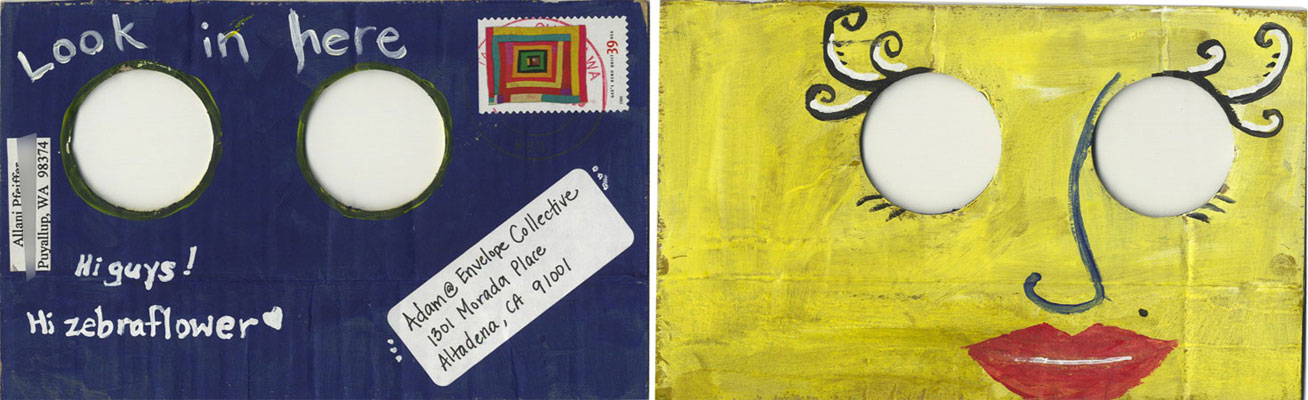 Look in here
39 USA
WA
Allani Pfeiffer
Puyallup, WA 98374
Hi guys!
Hi zebraflower
Adam @ Envelope Collective
1301 Morada Place
Altadena, CA 91001